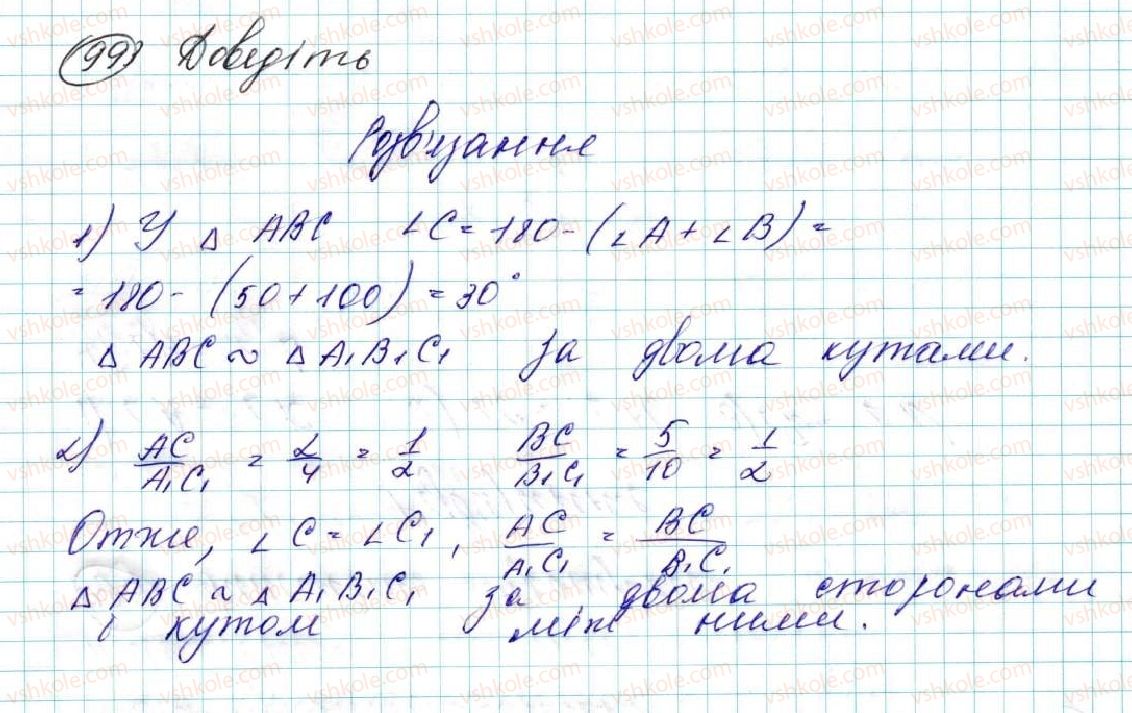 993 Доведіть
Розв'язання
1) У △ ABC ∠C = 180 - (∠A + ∠B) =
= 180 - (50 + 100) = 30°
△ ABC ~ △ A₁B₁C₁ за двома кутами.
2) AC/A₁C₁ = 2/4 = 1/2 BC/B₁C₁ = 5/10 = 1/2
Отже, ∠C = ∠C₁, AC/A₁C₁ = BC/B₁C₁
△ ABC ~ △ A₁B₁C₁ за двома сторонами
і кутом між ними.